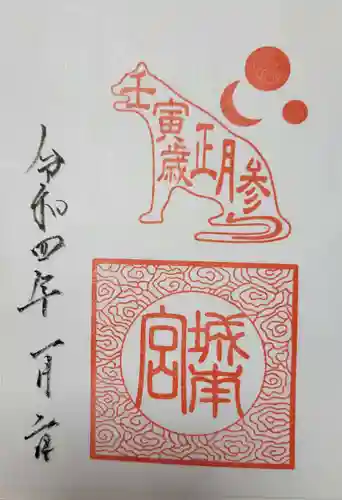 壬寅歳
正月参
城南宮
令和四年一月六日